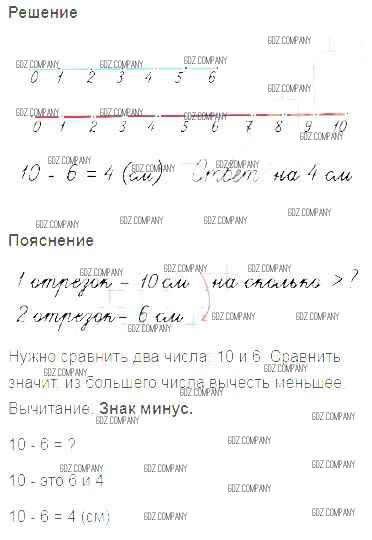 Решение
GDZ.COMPANY
GDZ.COMPANY GDZ.COMPANY GDZ.COMPANY
0 1 2 3 4 5 6
GDZ.COMPANY GDZ.COMPANY GDZ.COMPANY GDZ.COMPANY
0 1 2 3 4 5 6 7 8 9 10
GDZ.COMPANY
GDZ.COMPANY GDZ.COMPANY GDZ.COMPANY
10 - 6 = 4 (см) Ответ на 4 см
GDZ.COMPANY GDZ.COMPANY GDZ.COMPANY GDZ.COMPANY
Пояснение
GDZ.COMPANY GDZ.COMPANY GDZ.COMPANY
1 отрезок - 10 см на сколько > ?
2 отрезок - 6 см
GDZ.COMPANY GDZ.COMPANY GDZ.COMPANY
Нужно сравнить два числа: 10 и 6. Сравнить
GDZ.COMPANY GDZ.COMPANY
значит, из большего числа вычесть меньшее.
GDZ.COMPANY
Вычитание. Знак минус.
GDZ.COMPANY GDZ.COMPANY
10 - 6 = ?
GDZ.COMPANY
GDZ.COMPANY GDZ.COMPANY
10 - это 6 и 4
GDZ.COMPANY
10 - 6 = 4 (см)
GDZ.COMPANY GDZ.COMPANY